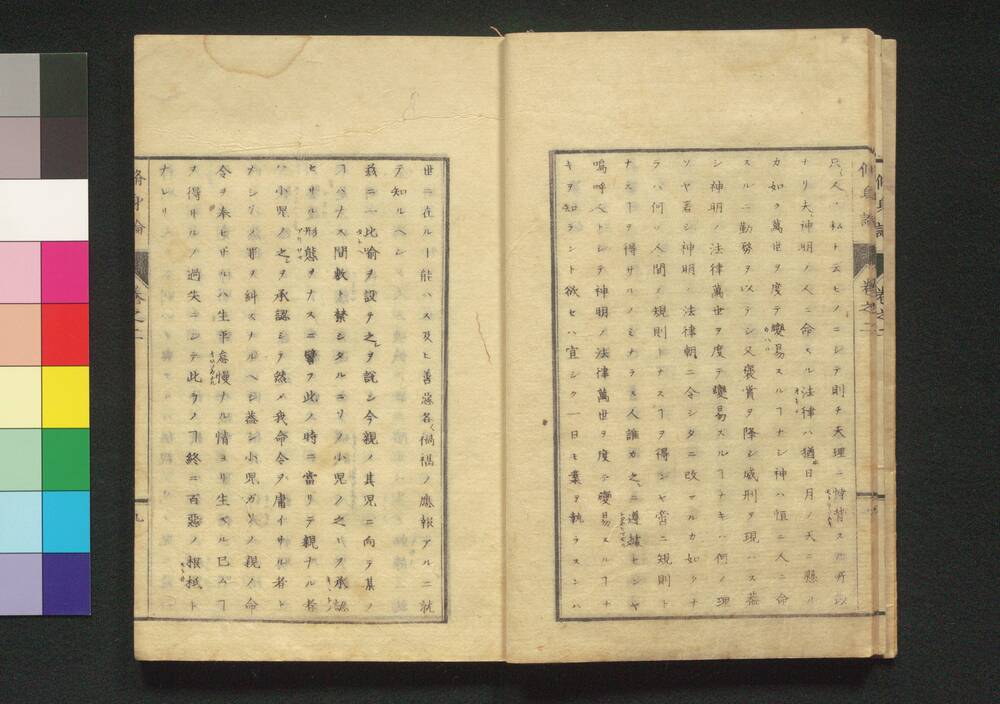 只人ノ私ト云ヒノニシテ則チ天理ニ悖背スル所以
ナリ夫神明ノ人ニ命スル法律ハ猶日月ノ天ニ懸ル
カ如ク萬世ヲ度テ變易スルヿナシ神ハ恒ニ人ニ命
スルニ勤勞ヲ以テシ又褒賞ヲ降シ威刑ヲ現ハス蓋
シ神明ノ法律萬世ヲ度テ變易スルヿナキハ何ノ理
ソヤ若シ神明ノ法律朝ニ令シタニ改マルカ如クナ
ラハ何ソ人間ノ規則トナスヿヲ得ンヤ啻ニ規則ト
ナスヿヲ得サルノミナラス人誰カ之ニ遵依センヤ
嗚呼人トシテ神明ノ法律萬世ヲ度テ變易スルヿナ
キヲ知ラント欲セハ宜シク一日モ業ヲ執ラスンハ
世ニ在ルヿ能ハス及ヒ善惡各〻禍福ノ應報アルニ就
テ知ルヘシ
茲ニ一比喻ヲ設テ之ヲ說シ今親ノ其児ニ向テ某ノ
ヿハナス間敷ト禁シタルニソノ小児ノ之レヲ承認
セサル形態ヲナスニ譬フ此ノ時ニ當リテ親ナル者
ハ小児ノ之ヲ承認シテ然メ我命令ヲ庸イサル者ト
ナシテ罪ヲ糾スナルヘシ蓋シ小児カソノ親ノ命
令ヲ奉セサルハ生平怠慢ナル情ヨリ生スル已ムヿ
ヲ得サルノ過失ニシテ此クノヿ終ニ百惡ノ根柢ト
ナレリ
卷之二
九